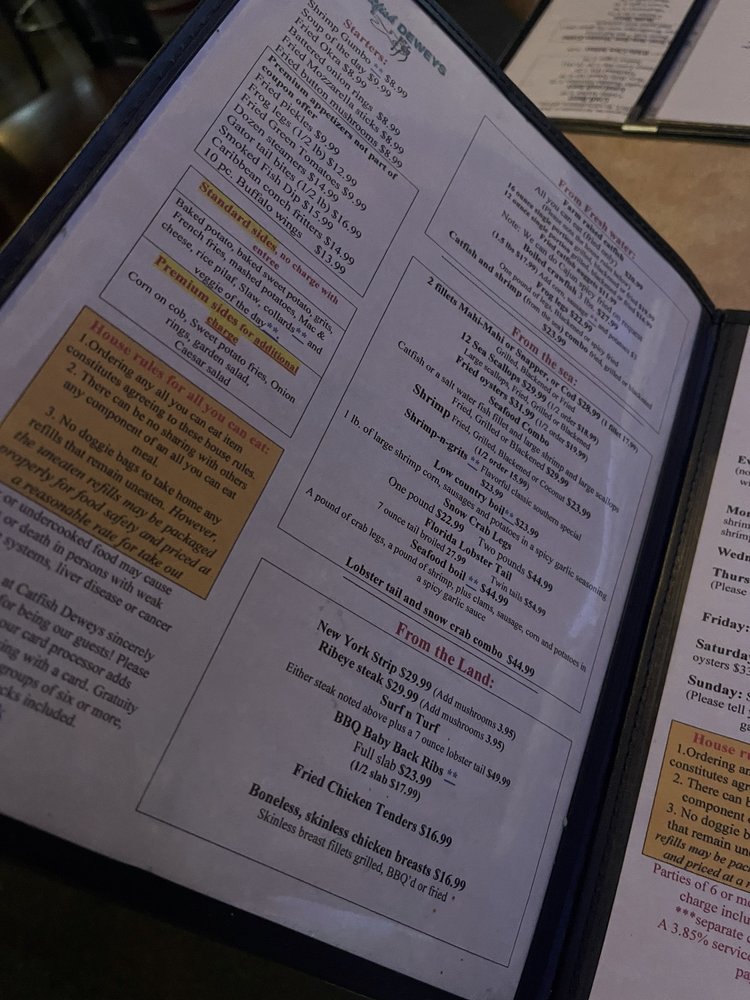 DEWEYS
Starters:
Shrimp Gumbo ** $8.99
Soup of the day $9.99
Fried Okra $8.99
Battered onion rings $8.99
Fried Mozzarella sticks $8.99
Fried button mushrooms $8.99
Premium appetizers not part of
coupon offer
Fried pickles $9.99
Frog legs (1/2 lb) $12.99
Fried Green Tomatoes $9.99
Dozen Steamers $14.99
Gator tail bites (1/2 lb) $16.99
Smoked Fish Dip $15.99
Caribbean conch fritters $14.99
10 pc. Buffalo wings $13.99
Standard sides, no charge with
entree
Baked potato, baked sweet potato, grits,
French fries, mashed potatoes, Mac &
cheese, rice pilaf, Slaw, collards** and
veggie of the day**
Premium sides for additional
charge
Corn on cob, Sweet potato fries, Onion
rings, garden salad,
Caesar salad
House rules for all you can eat:
1.Ordering any all you can eat item
constitutes agreeing to these house rules.
2. There can be no sharing with others
any component of an all you can eat
meal.
3. No doggie bags to take home any
refills that remain uneaten. However,
the uneaten refills may be packaged
properly for food safety and priced at
a reasonable rate for take out
or undercooked food may cause
or death in persons with weak
systems, liver disease or cancer
at Catfish Deweys sincerely
for being our guests! Please
our card processor adds
ing with a card. Gratuity
groups of six or more,
cks included.
From Fresh water:
All you can eat fried catfish
(Please note the house rules)
Note: We can do Cajun spicy fish on request
Boiled crawfish 3 lb. $27.99
(1.5 lbs $17.99) Add corn, sausage and potatoes $3
Frog legs $22.99
One pound of frog legs, fried or spicy fried
Catfish and shrimp (from the sea) combo fried, grilled or blackened
$23.99
From the sea:
2 fillets Mahi-Mahi or Snapper, or Cod $28.99 (1 fillet 17.99)
Grilled, Blackened or Fried
12 Sea Scallops $29.99 (1/2 order $18.99)
Large scallops Fried, Grilled or Blackened
Fried oysters $31.99 (1/2 order $19.99)
Seafood Combo
Catfish or a salt water fish fillet and large shrimp and large scallops
Fried, Grilled or Blackened $29.99
Shrimp Fried, Grilled, Blackened or Coconut $23.99
(1/2 order 15.99)
Shrimp-n-grits ** Flavorful classic southern special
$23.99
Low country boil** $23.99
1 lb. of large shrimp corn, sausages and potatoes in a spicy garlic seasoning
Snow Crab Legs
One pound $22.99 Two pounds $44.99
Florida Lobster Tail
7 ounce tail broiled 27.99 Twin tails $54.99
Seafood boil ** $44.99
A pound of crab legs, a pound of shrimp, plus clams, sausage, corn and potatoes in
a spicy garlic sauce
Lobster tail and snow crab combo $44.99
From the Land:
New York Strip $29.99 (Add mushrooms 3.95)
Ribeye steak $29.99 (Add mushrooms 3.95)
Surf n Turf
Either steak noted above plus a 7 ounce lobster tail $49.99
BBQ Baby Back Ribs **
Full slab $23.99
(1/2 slab $17.99)
Fried Chicken Tenders $16.99
Boneless, skinless chicken breasts $16.99
Skinless breast fillets grilled, BBQ'd or fried
Mon
shrim
shrimp
Wedn
Thurs
(Please
Friday:
Saturda
oysters $33
Sunday:
(Please tell
House ru
1.Ordering an
constitutes agr
2. There can b
component
3. No doggie b
that remain un
refills may be pack
and priced at a r
Parties of 6 or mo
charge inclu
***separate c
A 3.85% servic
pa